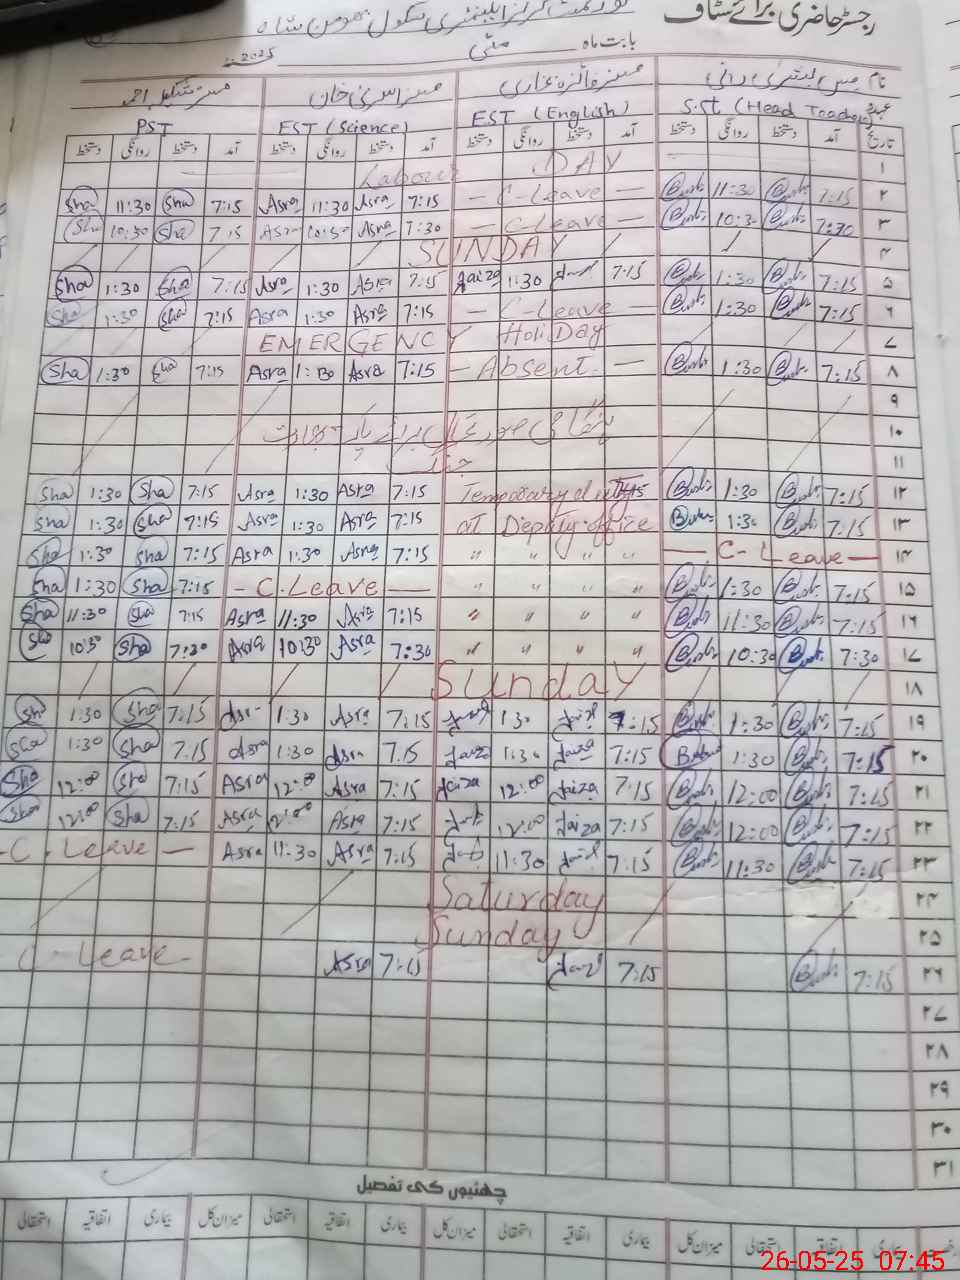 رجسٹر حاضری برائے سٹاف
گورنمنٹ گرلز ایلیمنٹری سکول
بابت ماہ مئی 2025
نام مس بشریٰ رانی مسز فائزہ غفاری مسز اسریٰ خان مسز شکیل احمد
عہدہ S.St (Head Teacher) EST (English) EST (Science) PST
تاریخ آمد دستخط روانگی دستخط آمد دستخط روانگی دستخط آمد دستخط روانگی دستخط آمد دستخط روانگی دستخط
۱ Labour DAY
Sha 11:30 Sha 7:15 Asra 11:30 Asra 7:15 - C-Leave - Bush 11:30 Bush 7:15 ۲
Sha 10:30 Sha 7:15 Asra 10:30 Asra 7:30 - C-Leave - Bush 10:30 Bush 7:30 ۳
SUNDAY ۴
Sha 1:30 Sha 7:15 Asra 1:30 Asra 7:15 Faiza 1:30 7:15 Bush 1:30 Bush 7:15 ۵
Sha 1:30 Sha 7:15 Asra 1:30 Asra 7:15 - C-Leave Bush 1:30 Bush 7:15 ۶
EMERGENCY HoliDay ۷
Sha 1:30 Sha 7:15 Asra 1:30 Asra 7:15 - Absent. - Bush 1:30 Bush 7:15 ۸
۹
ہنگامی صورتحال برائے پاک بھارت ۱۰
جنگ ۱۱
Sha 1:30 Sha 7:15 Asra 1:30 Asra 7:15 Temporary Bush 1:30 Bush 7:15 ۱۲
Sha 1:30 Sha 7:15 Asra 1:30 Asra 7:15 at Deputy office Bush 1:30 Bush 7:15 ۱۳
Sha 1:30 Sha 7:15 Asra 1:30 Asra 7:15 " " " " — C- Leave — ۱۴
Sha 1:30 Sha 7:15 - C.Leave — " " " " Bush 1:30 Bush 7:15 ۱۵
Sha 11:30 Sha 7:15 Asra 11:30 Asra 7:15 " " " " Bush 11:30 Bush 7:15 ۱۶
Sha 10:30 Sha 7:30 Asra 10:30 Asra 7:30 " " " " Bush 10:30 Bush 7:30 ۱۷
Sunday ۱۸
Sha 1:30 Sha 7:15 Asra 1:30 Asra 7:15 Faiza 1:30 Faiza 7:15 Bush 1:30 Bush 7:15 ۱۹
Sha 1:30 Sha 7.15 Asra 1:30 Asra 7.15 Faiza 1:30 Faiza 7:15 Bush 1:30 Bush 7:15 ۲۰
Sha 12:00 Sha 7:15 Asra 12:00 Asra 7:15 Faiza 12:00 Faiza 7:15 Bush 12:00 Bush 7:15 ۲۱
Sha 12:00 Sha 7:15 Asra 12:00 Asra 7:15 12:00 Faiza 7:15 Bush 12:00 Bush 7:15 ۲۲
- C. Leave — Asra 11:30 Asra 7:15 11:30 7:15 Bush 11:30 Bush 7:15 ۲۳
Saturday ۲۴
Sunday ۲۵
C - Leave - Asra 7:15 Faiza 7:15 Bush 7:15 ۲۶
۲۷
۲۸
۲۹
۳۰
۳۱
چھٹیوں کی تفصیل
بیماری اتفاقیہ استحقاقی میزان کل بیماری اتفاقیہ استحقاقی میزان کل بیماری اتفاقیہ استحقاقی میزان کل بیماری اتفاقیہ استحقاقی
26-05-25 07:45